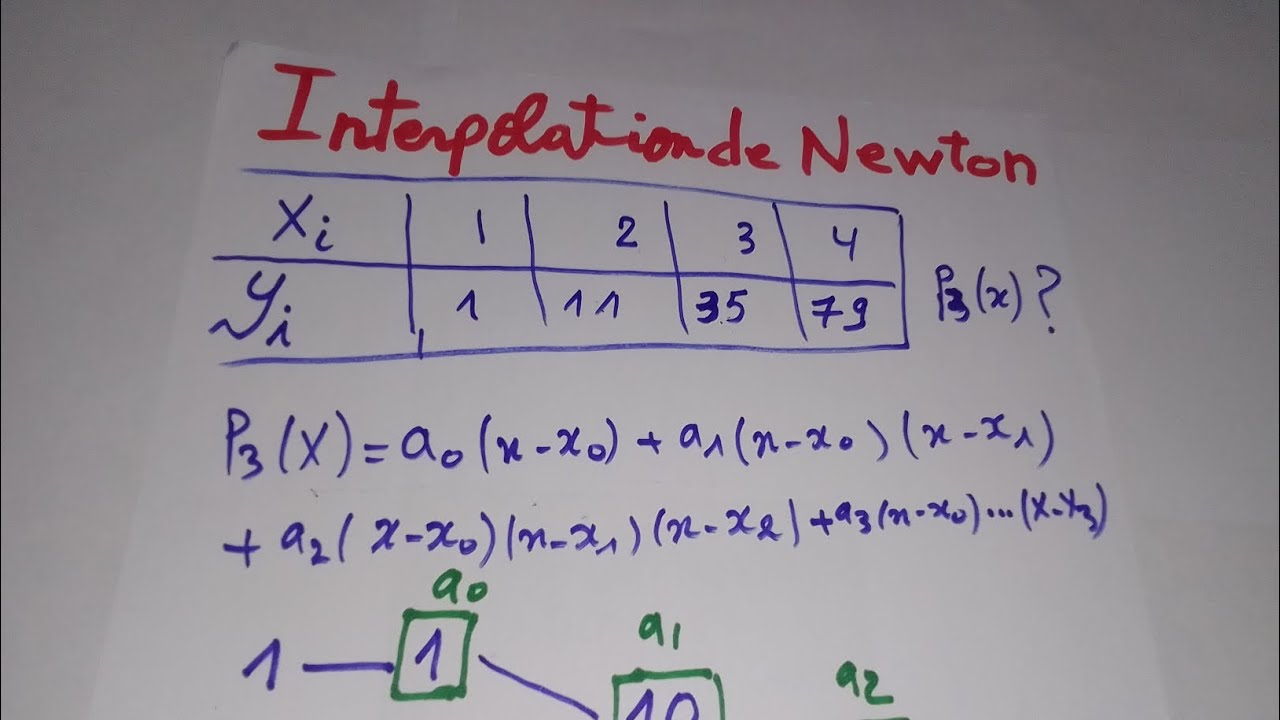 Interpolation de Newton
Xi 1 2 3 4
yi 1 11 35 79 P3(x)?
P3(X) = a0(x-x0) + a1(x-x0)(x-x1)
+ a2(x-x0)(x-x1)(x-x2) + a3(x-x0)...(x-x3)
a0
a1
1 1
a2
10